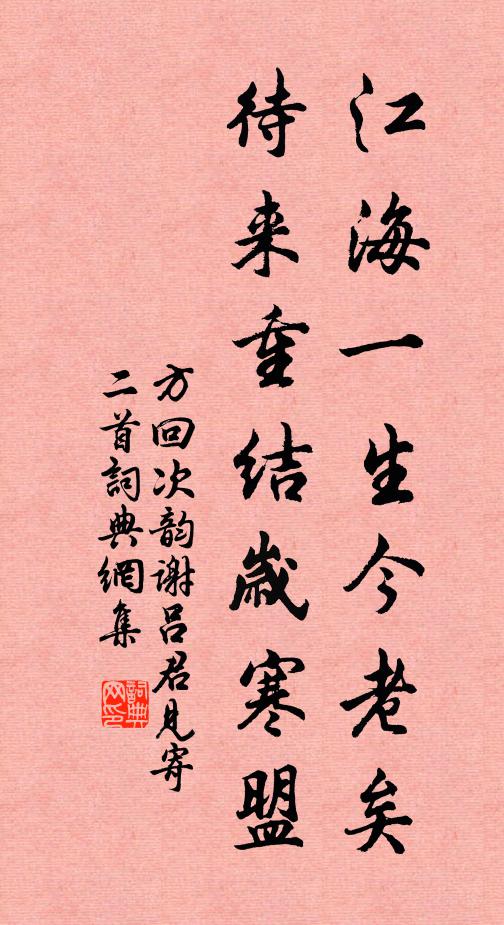 江海一生今老矣
待来重结歲寒盟
方回次韵谢吕君見寄
二首詞典網集
詞典网印